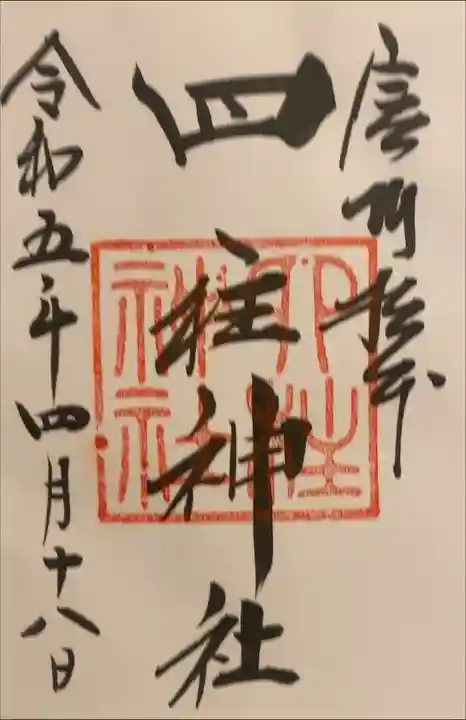 州松本
四柱神社
四柱
神社
令和五年四月十八日